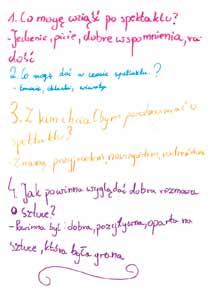 1. Co mogę wziąść po spektaklu?
- Jedzenie, picie, dobre wspomnienia, ra-
dość
2. Co mogę dać w czasie spektaklu?
- Emocje, oklaski,
3. Z kim chciałbym porozmawiać o
spektaklu?
- Z mamą, przyjacielem, nauczycielem, rodzeństwem
4. Jak powinna wyglądać dobra rozmowa
o sztuce?
- Powinna być: dobra, pozytywna, oparta na
sztuce, która była grana